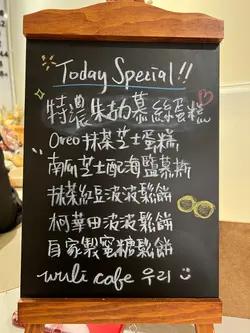 Today Special!!
特濃朱古力慕絲蛋糕
Oreo抹茶芝士蛋糕
南瓜芝士配海鹽慕斯
抹茶紅豆波波鬆餅
柯華田波波鬆餅
自家製蜜糖鬆餅
wuli cafe 우리